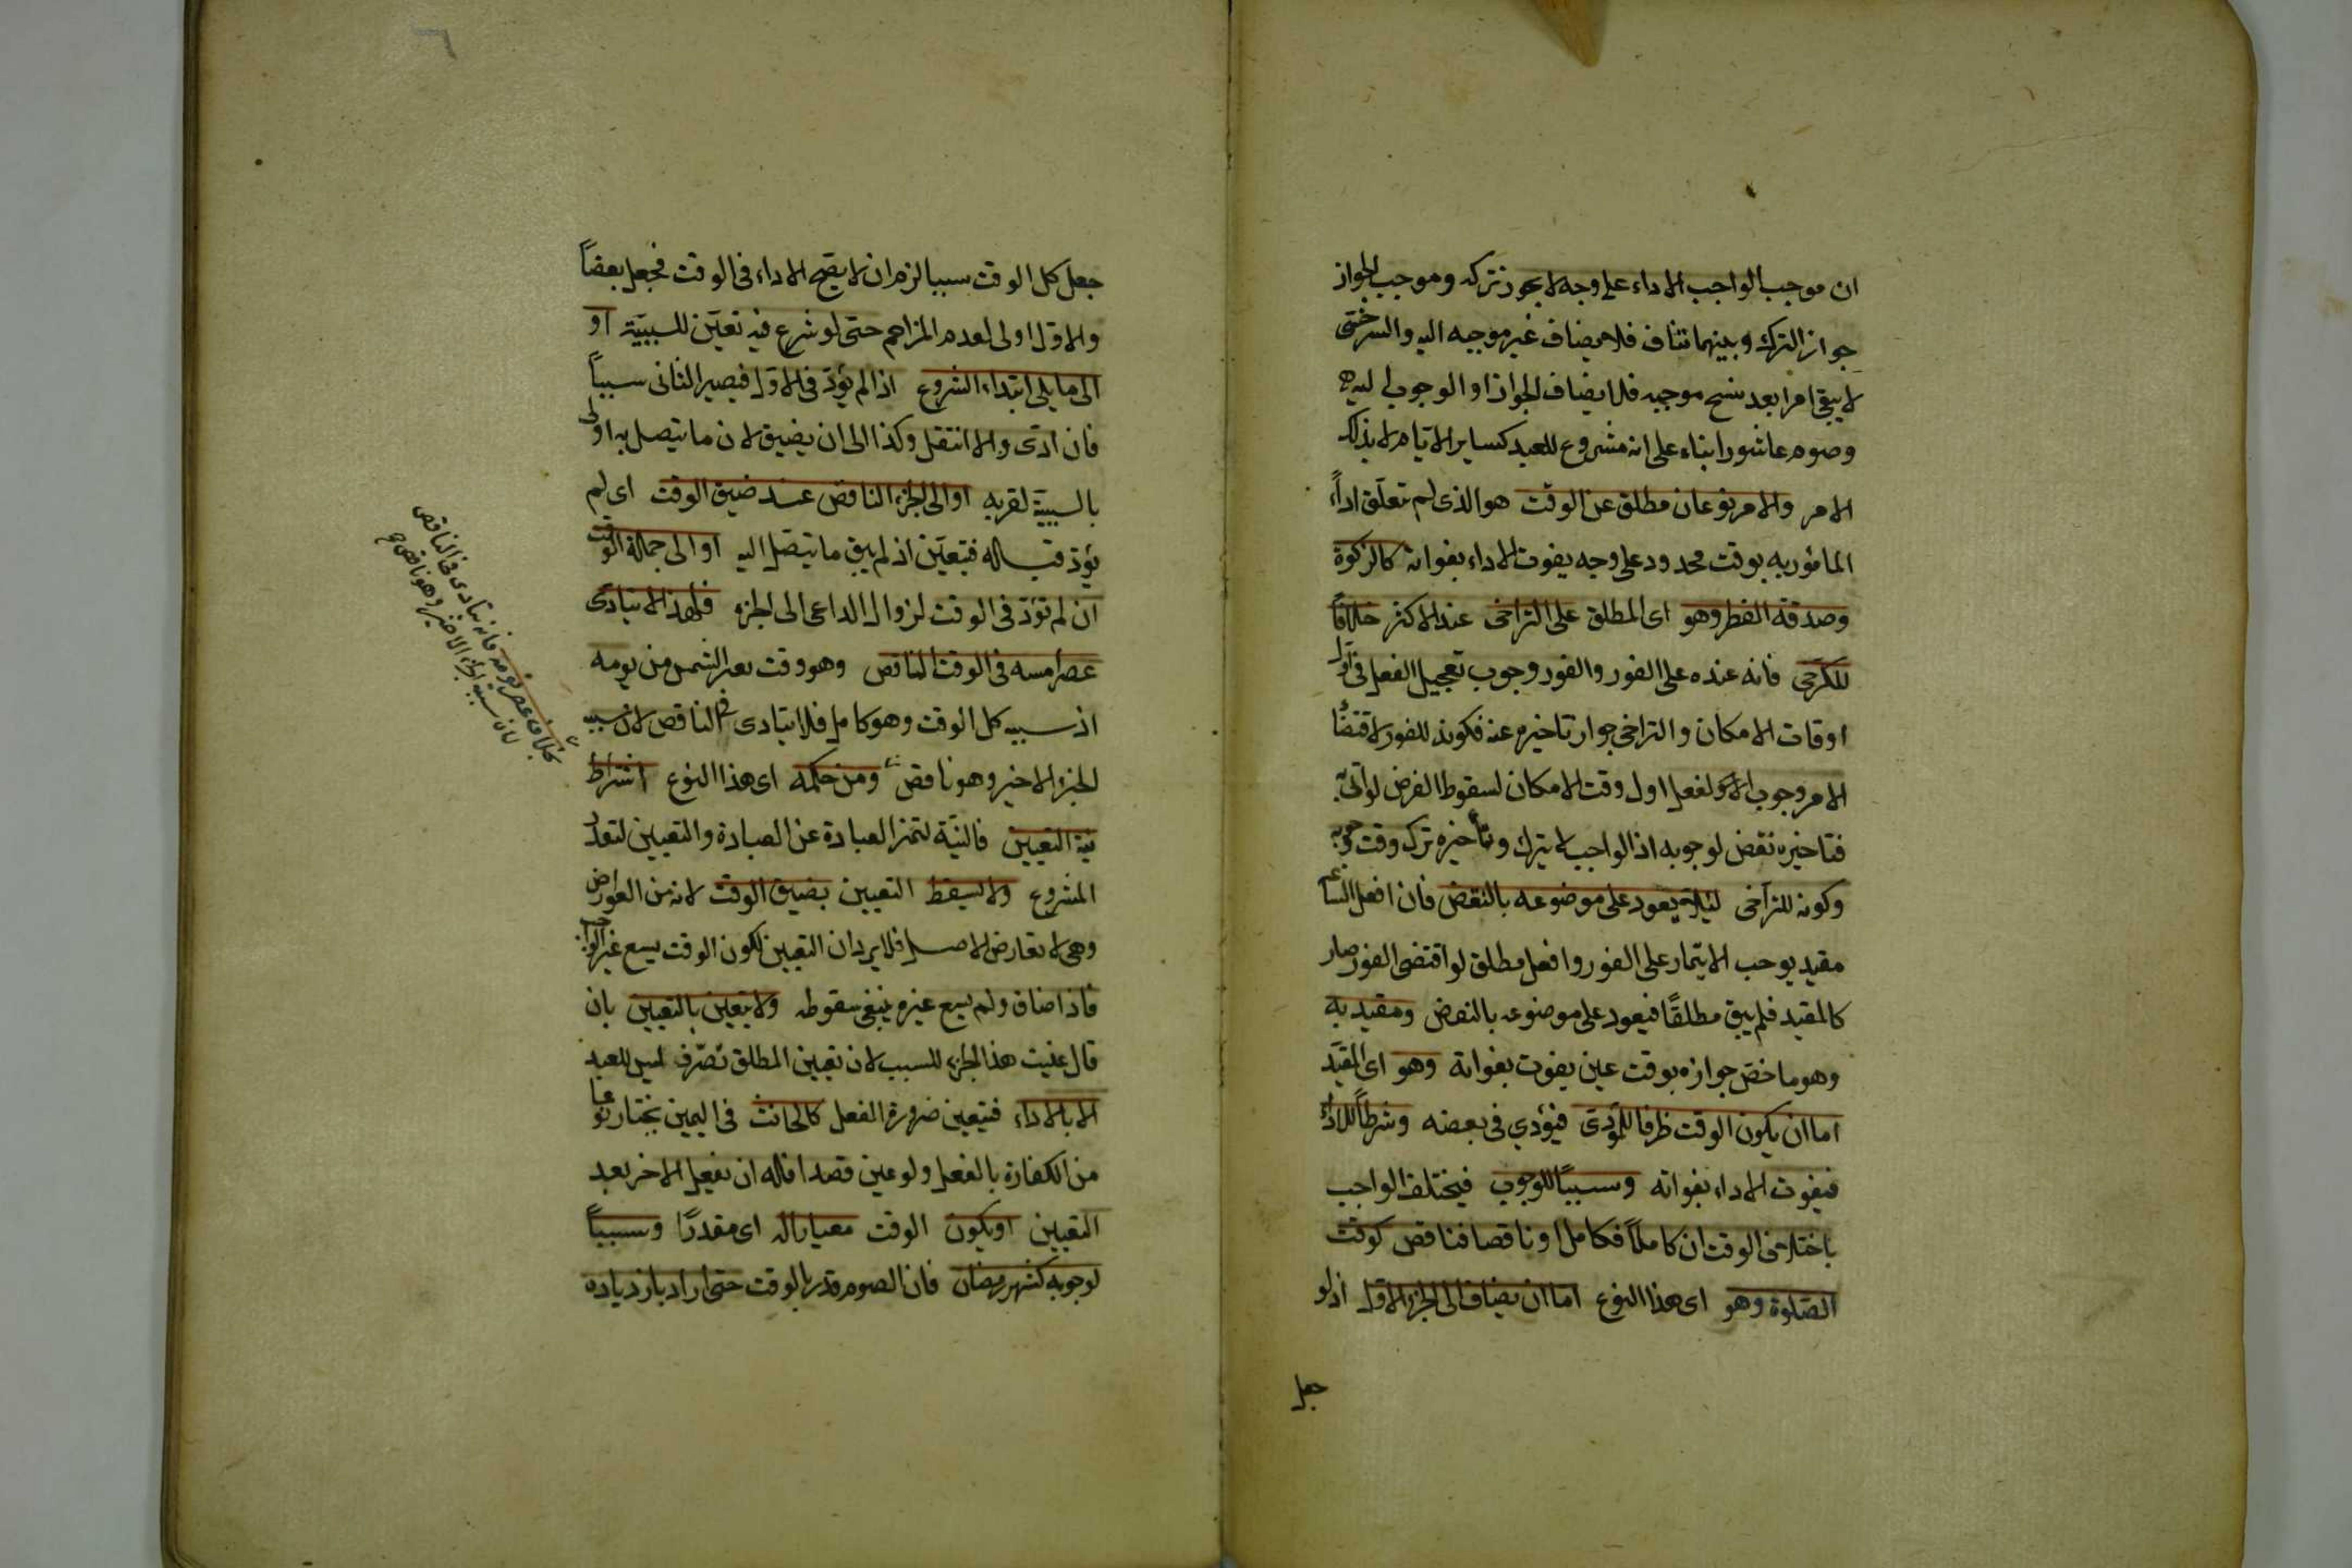 ان موجب الواجب الاداء على وجه لا يجوز تركه وموجب الجواز
جواز الترك وبينهما تناف فلا يضاف غير موجبه اليه والسرختى
لا يبقى امرا بعد نسخ موجبه فلا يضاف الجواز او الوجوب اليه
وصوم عاشورا بناء على انه مشروع للعبد كساير الايام لا بذلك
الامر والامر نوعان مطلق عن الوقت هو الذى لم تعلق اداء
المامور به بوقت محدود على وجه يفوت الاداء بفواته كالزكوة
وصدقة الفطر وهو اى المطلق على التراخى عند الاكثر خلافاً
للكرخى فانه عنده على الفور والفور وجوب تعجيل الفعل فى اول
اوقات الامكان والتراخى جواز تاخيره عنه فكونه للفور لاقتضاء
الامر وجوب الفعل اول وقت الامكان لسقوط الفرض لو اتى به
فتاخيره نقض لوجوبه اذ الواجب لا يترك وتأخيره ترك وقت وجوبه
وكونه للتراخى لئلا يعود على موضوعه بالنقض فان افعل الساعة
مقيد يوجب الايتمار على الفور وافعل مطلق لو اقتضى الفور صار
كالمقيد فلم يبق مطلقًا فيعود على موضوعه بالنقض ومقيد به
وهو ما خص جوازه بوقت عين يفوت بفواته وهو اى المقيد
اما ان يكون الوقت ظرفا للمؤدى فيؤدي فى بعضه وشرطاً للاداء
فيفوت الاداء بفواته وسبباً للوجوب فيختلف الواجب
باختلاف الوقت ان كاملاً فكامل او ناقصا فناقص كوقت
الصلوة وهو اى هذا النوع اما ان يضاف الى الجزء الاول اذ لو
جعل
جعل كل الوقت سببا لزم ان لا يصح الاداء فى الوقت فجعل بعضاً
والاول اولى لعدم المزاحم حتى لو شرع فيه تعين للسببية او
الى ما يلى ابتداء الشروع اذا لم يؤد فى الاول فيصير الثانى سبباً
فان ادى والا انتقل وكذا الى ان يضيق لان ما يتصل به اولى
بالسببية لقربه او الى الجزء الناقص عند ضيق الوقت اى لم
يؤد قبله فتعين اذ لم يبق ما يتصل اليه او الى جملة الوقت
ان لم تؤد فى الوقت لزوال الداعى الى الجزء فلهذا لا يتادى
عصر امسه فى الوقت الناقص وهو وقت تغير الشمس من يومه
اذ سببه كل الوقت وهو كامل فلا يتادى فى الناقص لان سببه
الجزء الاخير وهو ناقص ومن حكمه اى هذا النوع اشتراط
نية التعيين فالنية لتميز العبادة عن العبادة والتعيين لتعدد
المشروع ولا يسقط التعيين بضيق الوقت لانه من العوارض
وهى لا تعارض الاصل فلا يرد ان التعيين لكون الوقت يسع غير الواجب
فاذا ضاق ولم يسع غيره ينبغى سقوطه ولا يتعين بالتعيين بان
قال عنيت هذا الجزء للسبب لان تعيين المطلق تصرف ليس للعبد
الا بالاداء فتيعين ضرورة الفعل كالحانث فى اليمين يختار نوعا
من الكفارة بالفعل ولو عين قصدا فله ان يفعل الاخر بعد
التعيين او يكون الوقت معيارا له اى مقدرًا وسبباً
لوجوبه كشهر رمضان فان الصوم قدر بالوقت حتى ازاد بازدياده
بخلاف عصر يومه فانه يتادى فى الناقص
لان سببه الجزء الاخير وهو ناقص